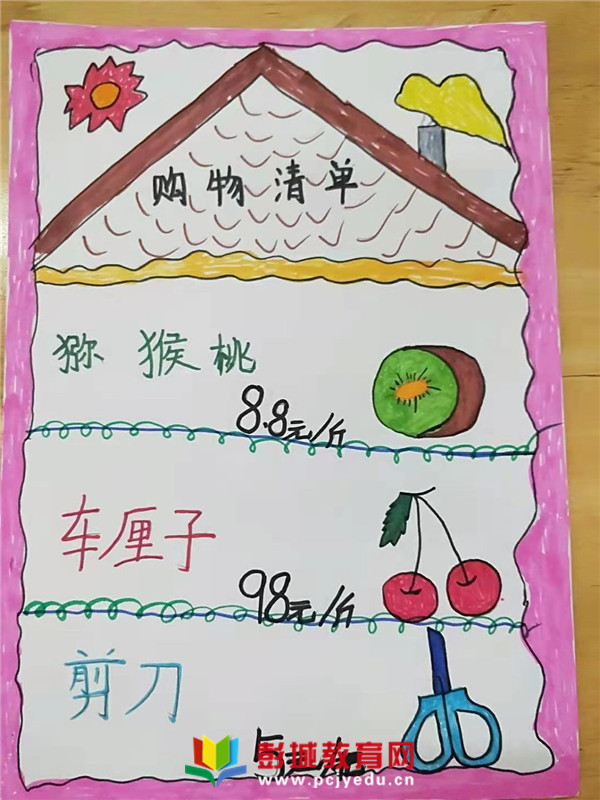 购物清单
猕猴桃
8.8元/斤
车厘子
98元/斤
剪刀
彭城教育网
www.pcjyedu.cn